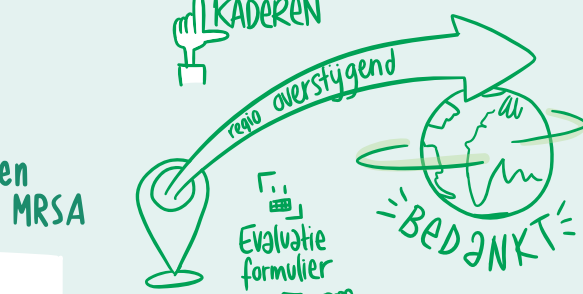 KADEREN
regio overstijgend
en
MRSA
Evaluatie
formulier
BEDANKT